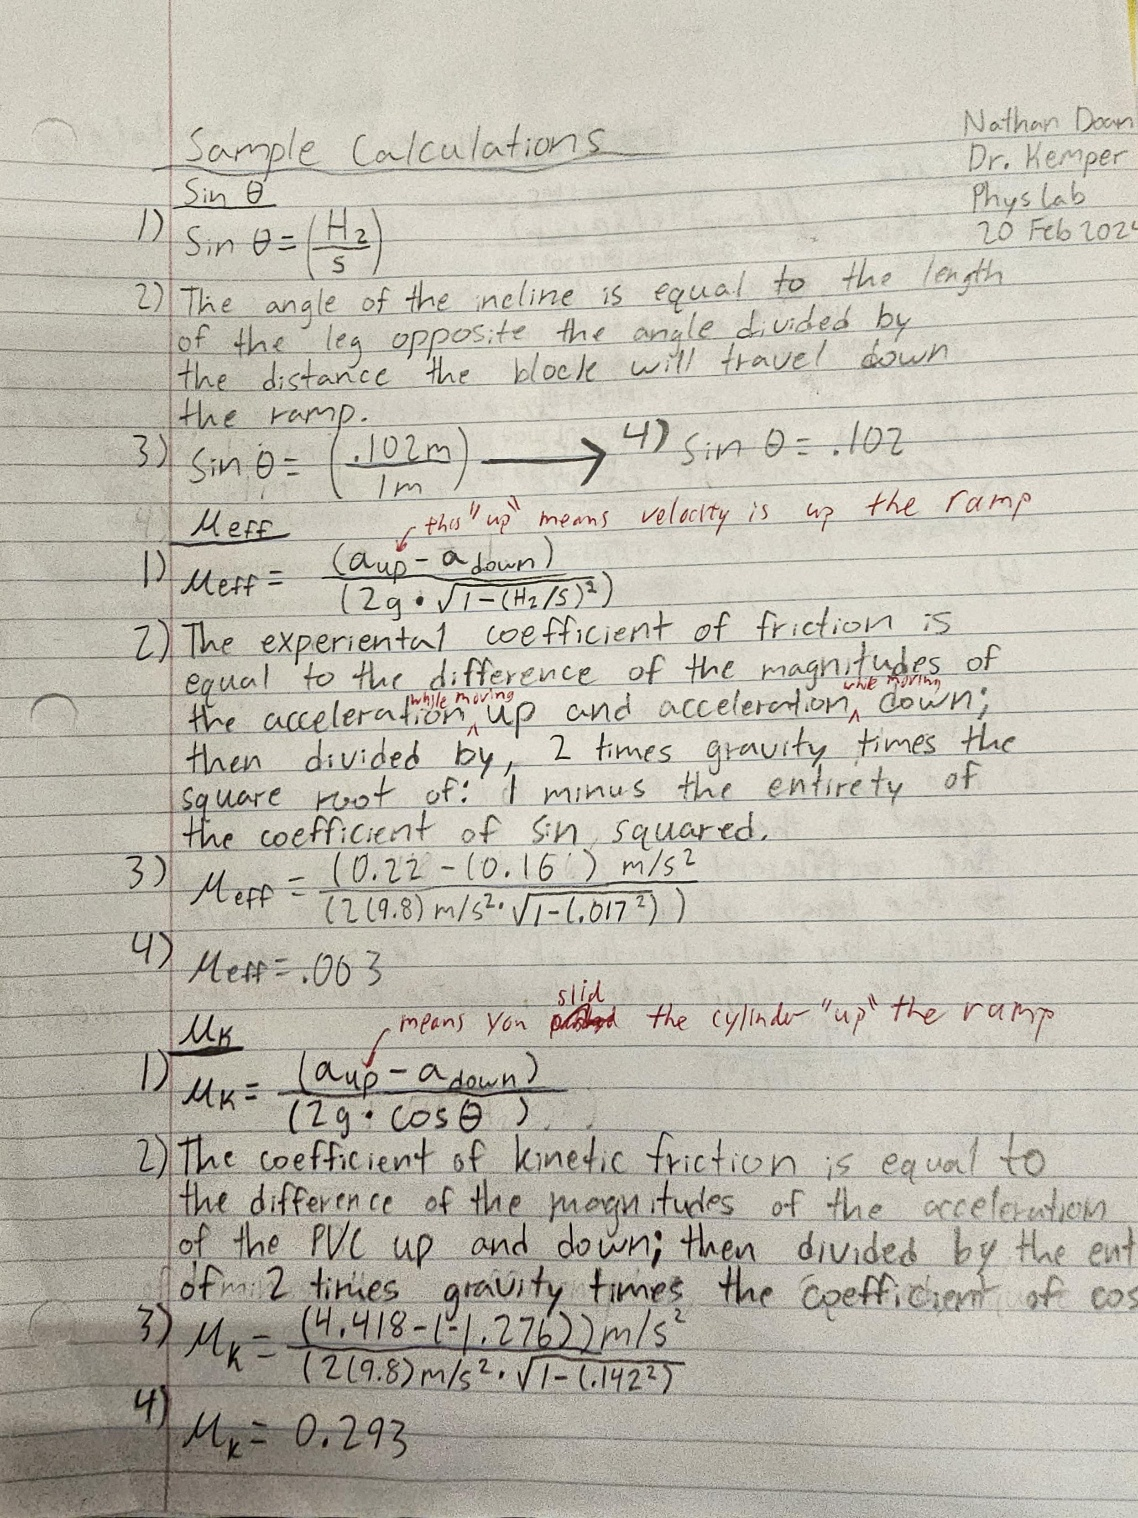 Nathan Doan
Dr. Kemper
Phys Lab
20 Feb 2024
Sample Calculations
Sin θ
1) Sin θ = (H₂/S)
2) The angle of the incline is equal to the length
of the leg opposite the angle divided by
the distance the block will travel down
the ramp.
3) Sin θ = (.102m/1m) → 4) Sin θ = .102
μeff
this "up" means velocity is up the ramp
1) μeff = (aup - adown)/(2g • √1-(H₂/S)²)
2) The experiental coefficient of friction is
equal to the difference of the magnitudes of
the acceleration while moving up and acceleration while moving down;
then divided by, 2 times gravity times the
square root of: 1 minus the entirety of
the coefficient of sin squared.
3) μeff = (0.22 - (0.16 ) m/s²/(2(9.8) m/s² • √1-(.017²))
4) μeff = .003
μK
means you slid the cylinder "up" the ramp
1) μK = (aup - adown)/(2g • cos θ )
2) The coefficient of kinetic friction is equal to
the difference of the magnitudes of the acceleration
of the PVC up and down; then divided by the ent
of 2 times gravity times the coefficient of cos
3) μK = (4.418-(-1.276))m/s²/(2(9.8)m/s² • √1-(.142²)
4) μK = 0.293